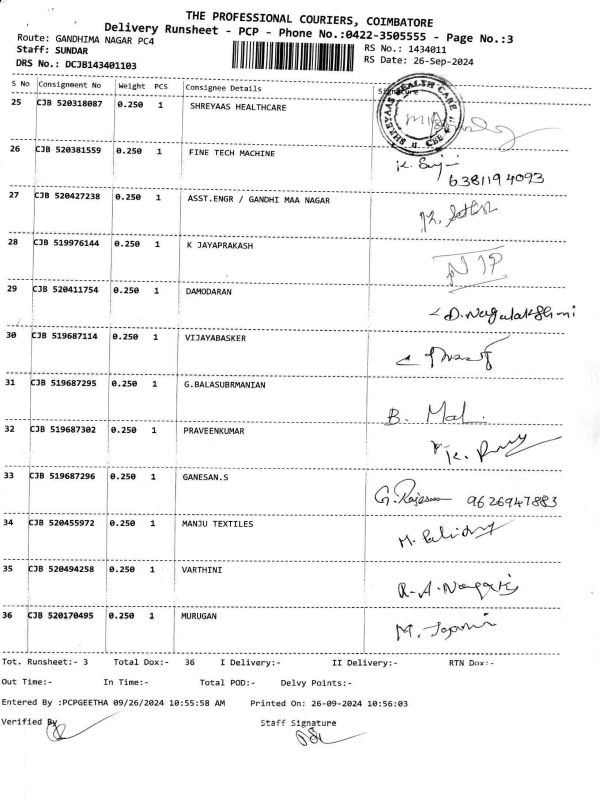 THE PROFESSIONAL COURIERS, COIMBATORE
Delivery Runsheet - PCP - Phone No.:0422-3505555 - Page No.:3
Route: GANDHIMA NAGAR PC4 RS No.: 1434011
Staff: SUNDAR RS Date: 26-Sep-2024
DRS No.: DCJB143401103
S No Consignment No Weight PCS Consignee Details Signature
25 CJB 520318087 0.250 1 SHREYAAS HEALTHCARE
26 CJB 520381559 0.250 1 FINE TECH MACHINE
6381194093
27 CJB 520427238 0.250 1 ASST.ENGR / GANDHI MAA NAGAR
28 CJB 519976144 0.250 1 K JAYAPRAKASH
29 CJB 520411754 0.250 1 DAMODARAN
D.Nagalakshmi
30 CJB 519687114 0.250 1 VIJAYABASKER
31 CJB 519687295 0.250 1 G.BALASUBRMANIAN
B. Mal.
32 CJB 519687302 0.250 1 PRAVEENKUMAR
33 CJB 519687296 0.250 1 GANESAN.S
9626947883
34 CJB 520455972 0.250 1 MANJU TEXTILES
35 CJB 520494258 0.250 1 VARTHINI
36 CJB 520170495 0.250 1 MURUGAN
Tot. Runsheet:- 3 Total Dox:- 36 I Delivery:- II Delivery:- RTN Dox:-
Out Time:- In Time:- Total POD:- Delvy Points:-
Entered By :PCPGEETHA 09/26/2024 10:55:58 AM Printed On: 26-09-2024 10:56:03
Verified By Staff Signature